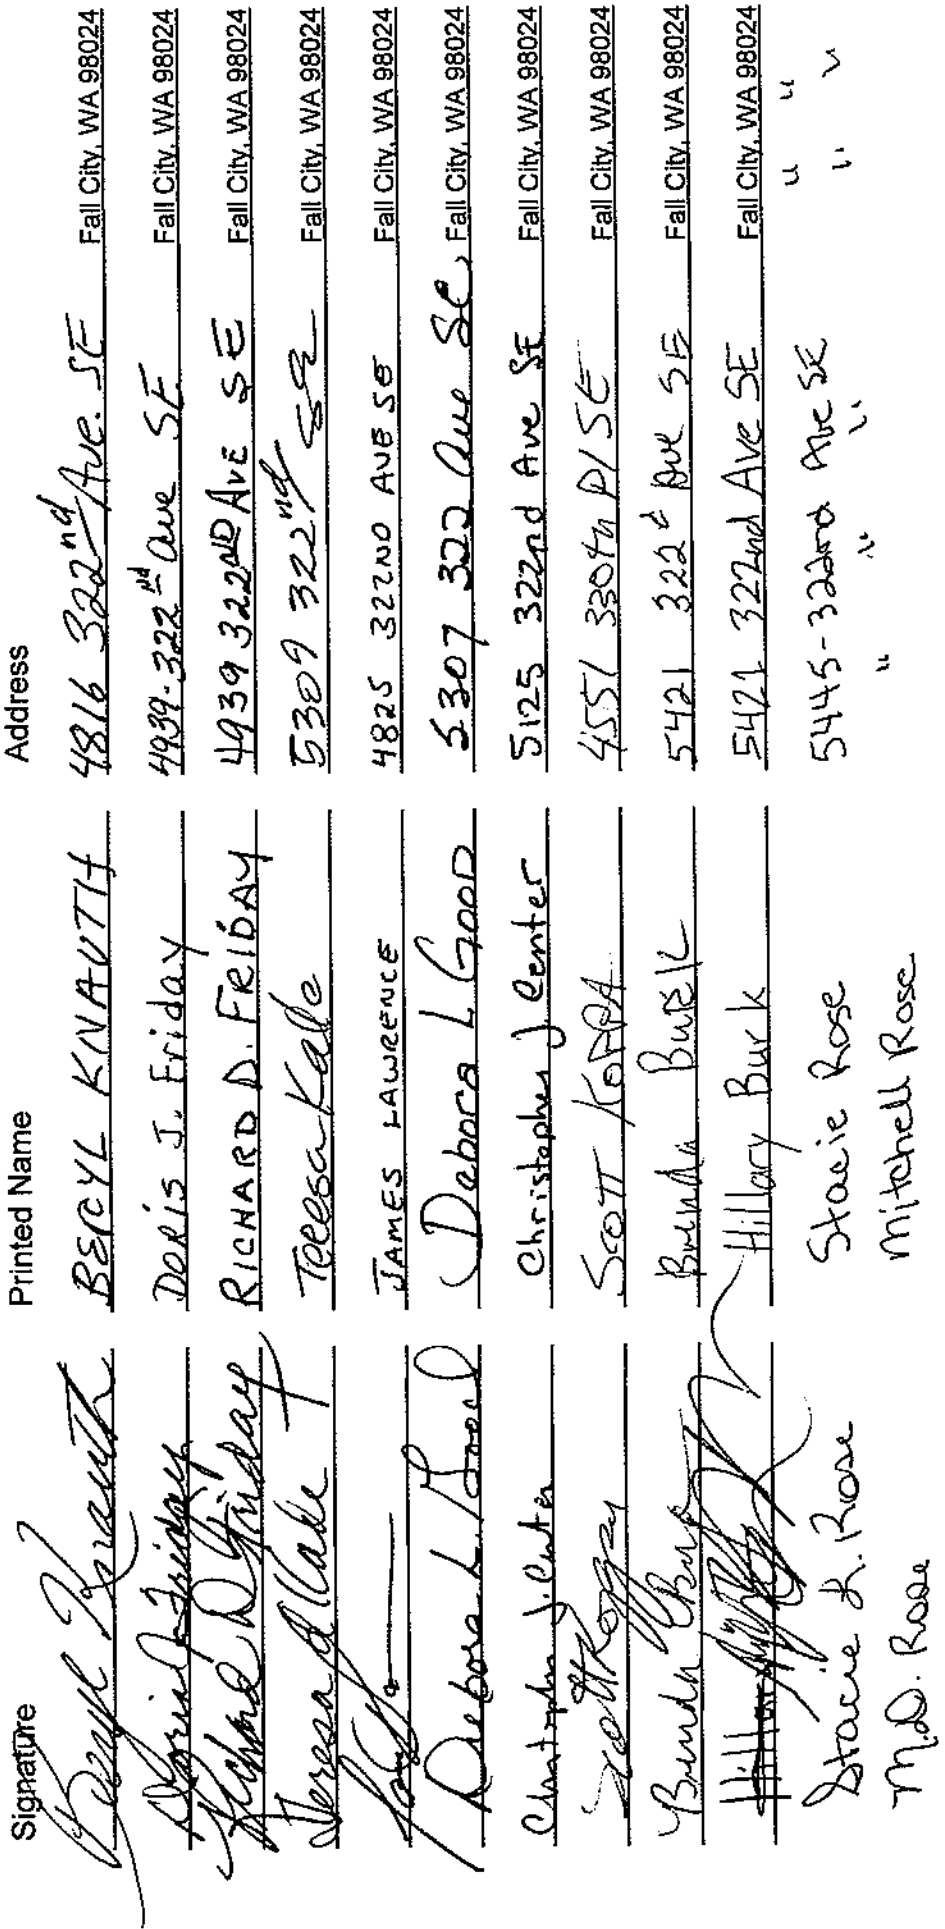 Signature Printed Name Address
Beryl Knauth BERYL KNAUTH 4816 322nd Ave. SE Fall City, WA 98024
Doris J. Friday DORIS J. Friday 4939-322nd Ave SE Fall City, WA 98024
Richard D Friday RICHARD D. FRIDAY 4939 322ND AVE SE Fall City, WA 98024
Teresa Kale Teresa Kale 5309 322nd SE Fall City, WA 98024
JAMES LAWRENCE 4825 322ND AVE SE Fall City, WA 98024
Debora L. Good Debora L GOOD 5307 322 Ave SE, Fall City, WA 98024
Christopher J. Center Christopher J Center 5125 322nd Ave SE Fall City, WA 98024
SCOTT 4551 330th Pl SE Fall City, WA 98024
Burk 5421 322d Ave SE Fall City, WA 98024
Hillary Burk 5421 322nd Ave SE Fall City, WA 98024
Stacie L. Rose Stacie Rose 5445-322nd Ave SE " "
M.D. Rose Mitchell Rose " " " " "